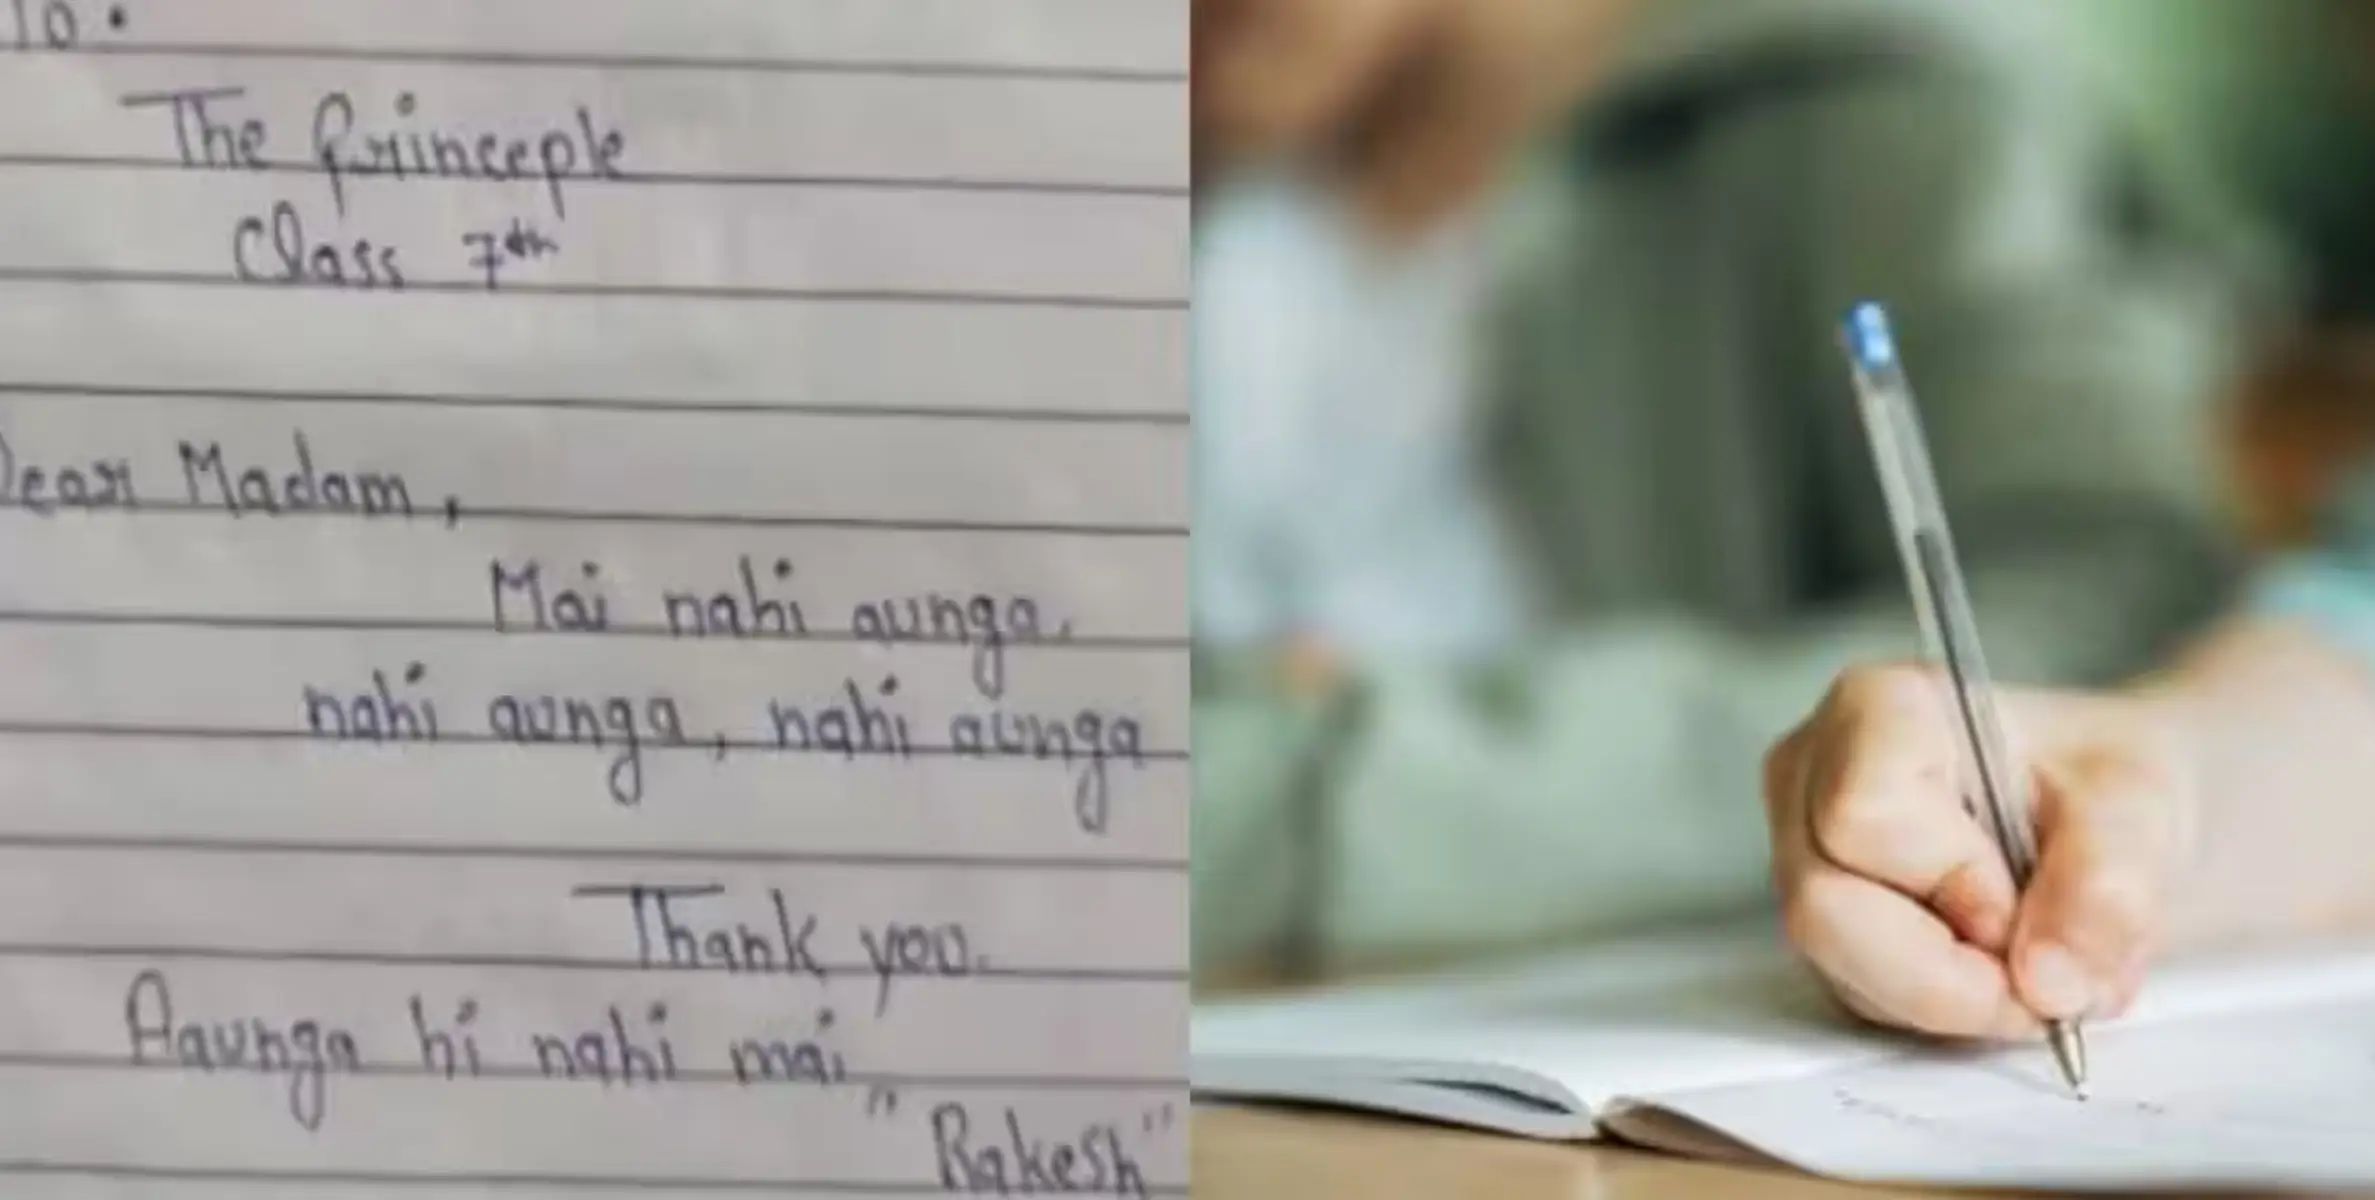 To.
The Princeple
Class 7th
Dear Madam,
Mai nahi aunga.
nahi aunga, nahi aunga
Thank you.
Aaunga hi nahi mai
"Rakesh"